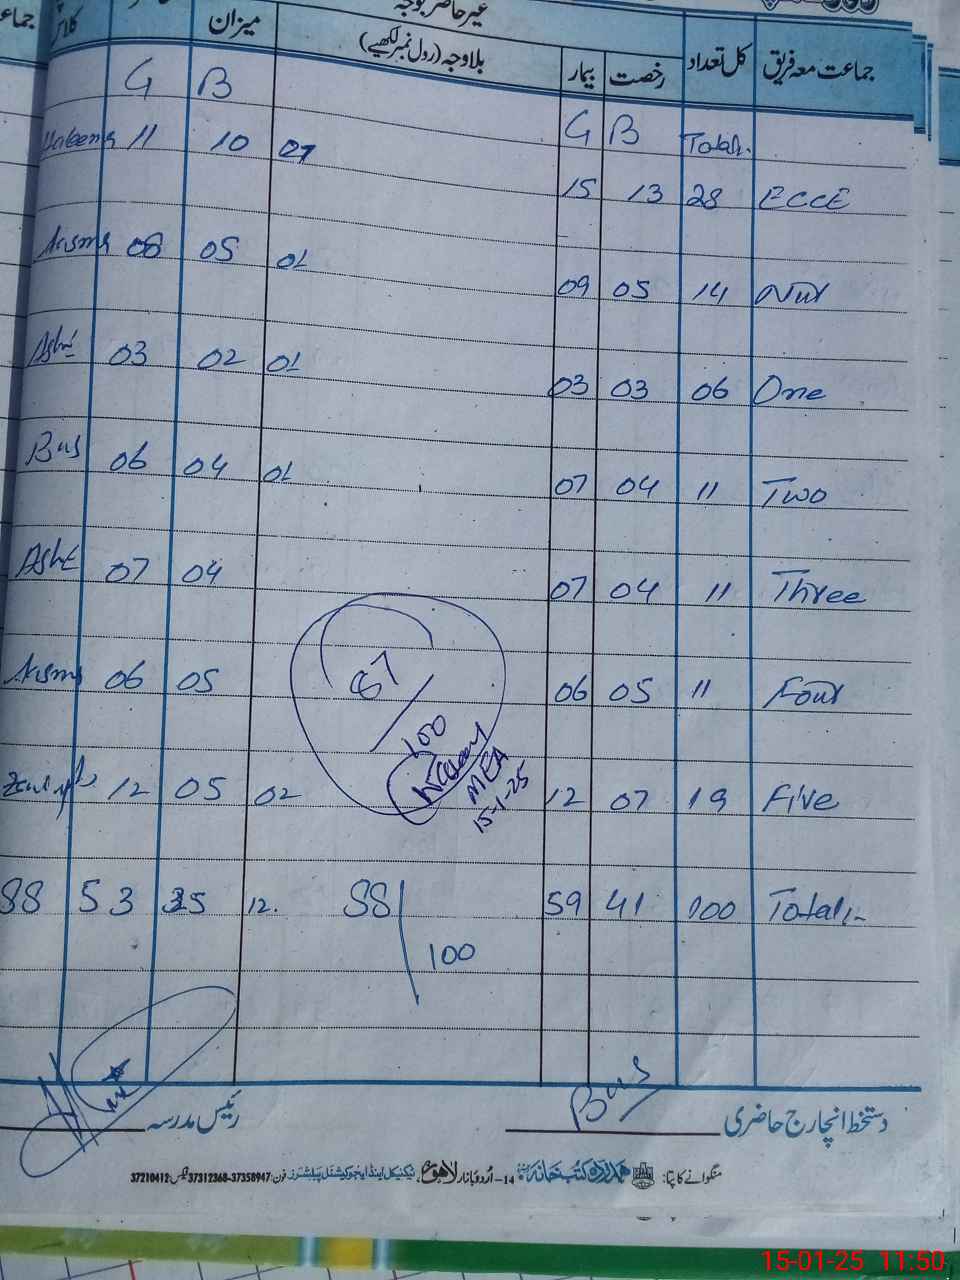 غیر حاضر بوجہ
جماعت معہ فریق کل تعداد رخصت بیمار بلاوجہ (رول نمبر لکھیے) میزان
G B
G B Total:-
11 10 07
15 13 28 ECCE
08 05 01
09 05 14 Nur
03 02 01
03 03 06 One
Bus 06 04 01
07 04 11 Two
07 04
07 04 11 Three
06 05
06 05 11 Four
87/100
MEA
15-1-25
12 05 02
12 07 19 Five
88 53 35 12. 88/100 59 41 100 Total:-
دستخط انچارج حاضری Bus
رئیس مدرسہ
منگوانے کا پتا: ہمدرد کتب خانہ 14-اُردو بازار لاہور، ٹیکنیکل اینڈ ایجوکیشنل پبلشرز فون: 37358947-37312368 فیکس: 37210412
15-01-25 11:50